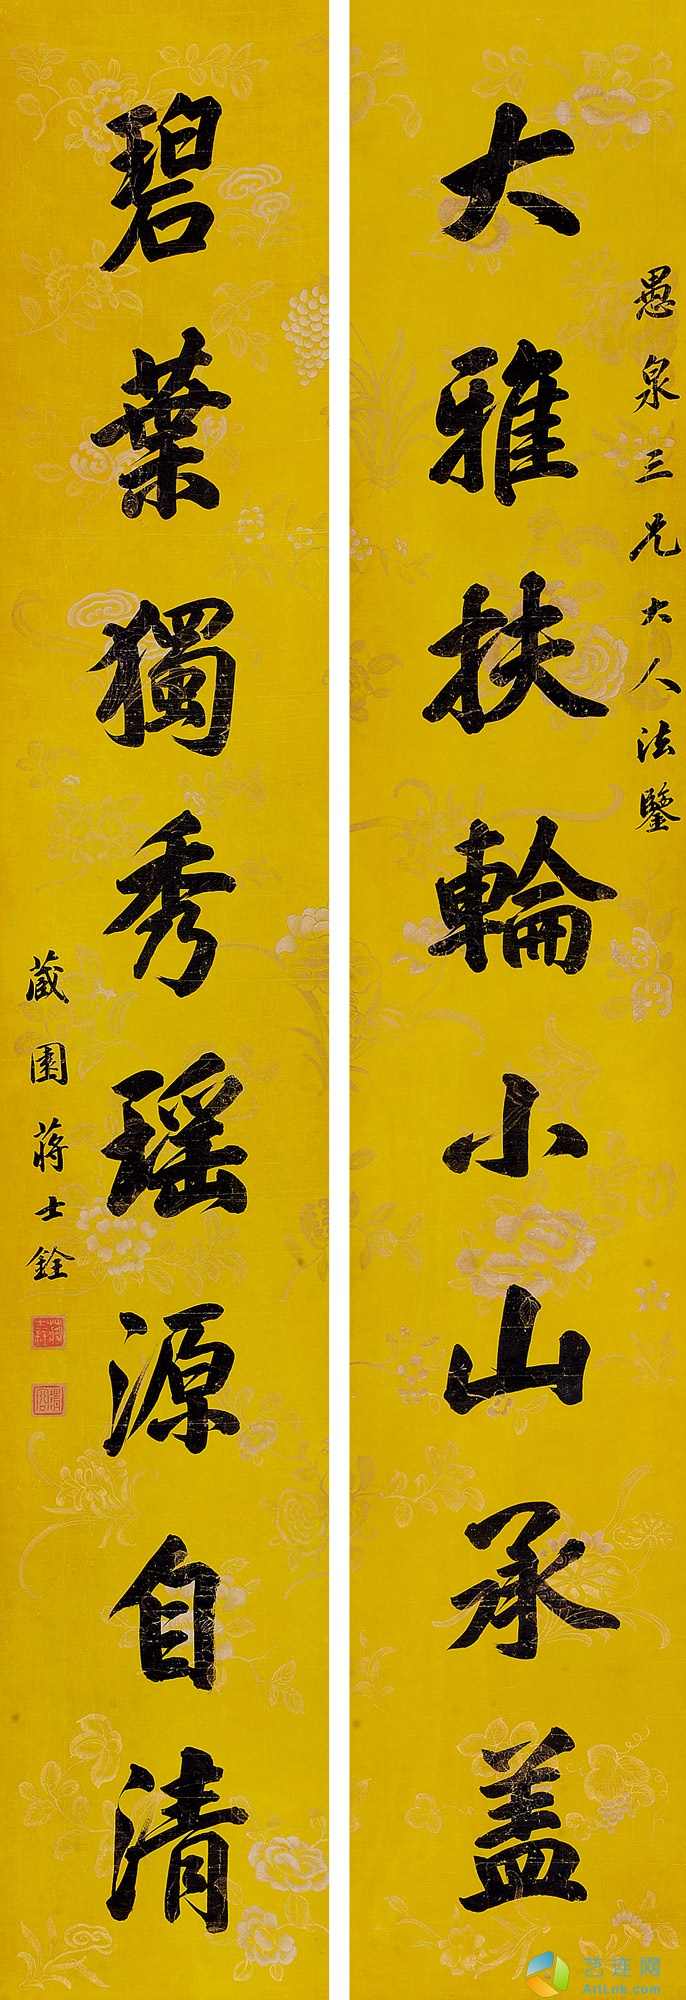 愚泉三兄大人法鑒
大雅扶輪小山承蓋
碧葉獨秀瑶源自清
藏園蔣士銓
艺连网
ArtLnk.com